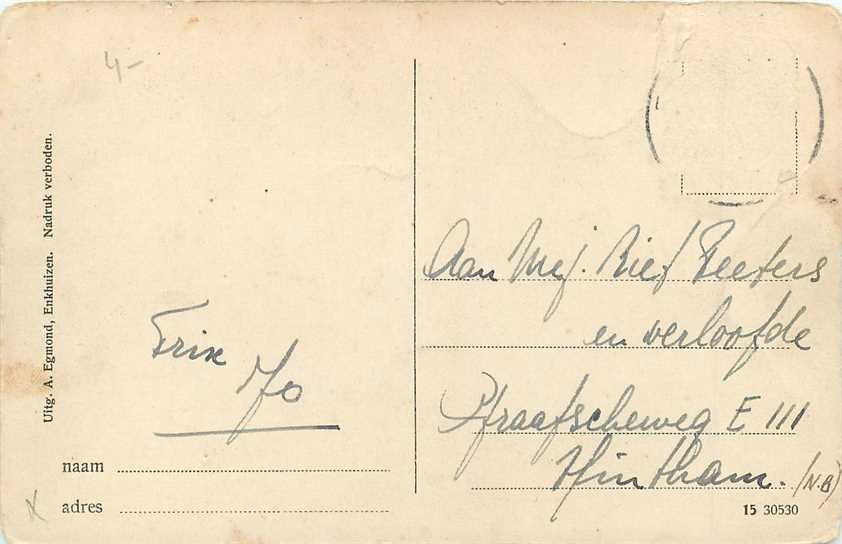 4-
Uitg. A. Egmond, Enkhuizen. Nadruk verboden.
Aan Mej. Riet Peeters
en verloofde
Graafscheweg E 111
Hintham. (N.B)
Trix
Jo
naam
adres
15 30530